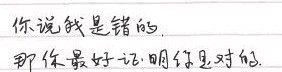 你说我是错的.
那你最好证明你是对的.